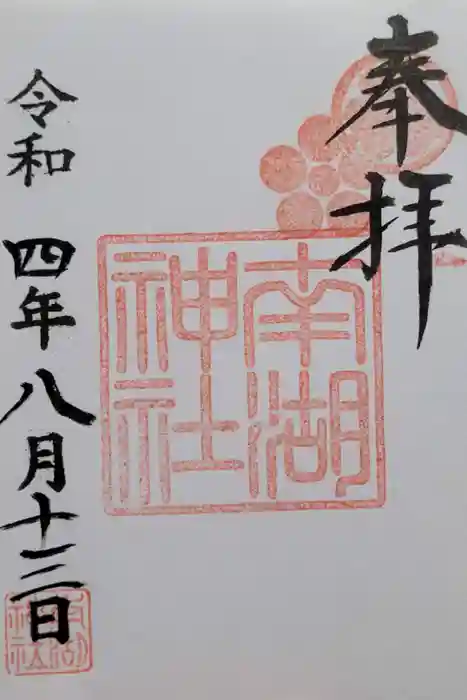 奉拝
南湖
神社
令和四年八月十三日
南湖
神社